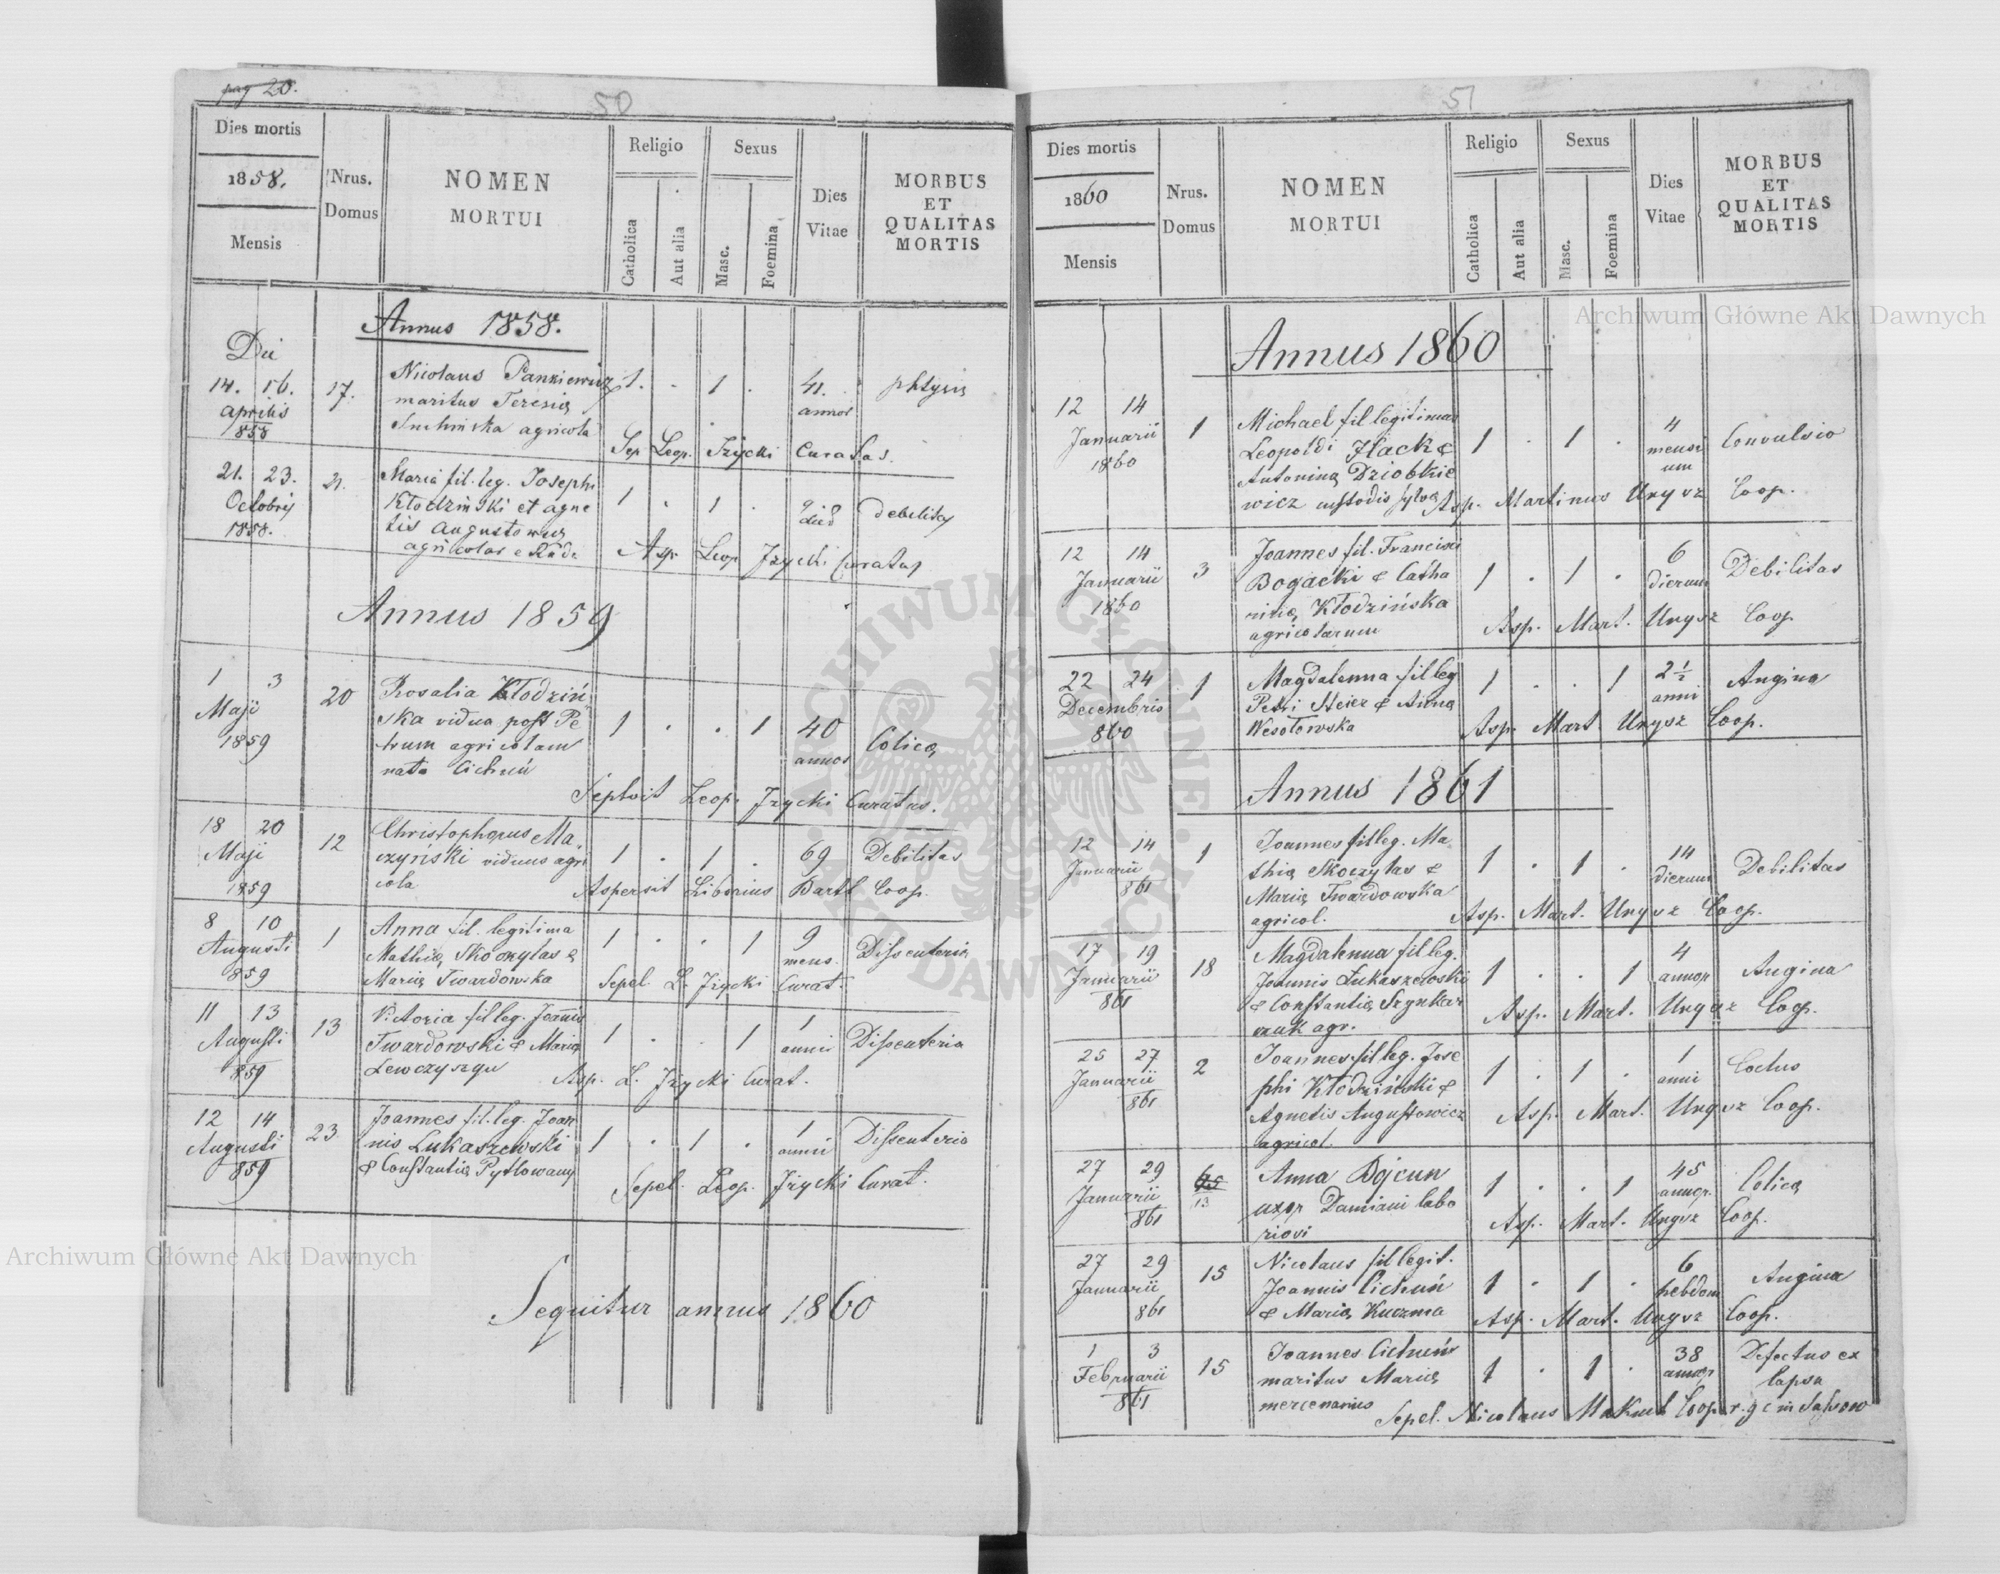 pag 20.
50
Dies mortis
1858.
Mensis
Nrus.
Domus
NOMEN
MORTUI
Religio
Catholica
Aut alia
Sexus
Masc.
Foemina
Dies
Vitae
MORBUS
ET
QUALITAS
MORTIS
Annus 1858.
Die
14. 16. 17. Nicolaus 1. . 1 . 41.
Aprilis maritus Teresiæ annos
1858 agricola
Sep Leop. Jzycki Curatus.
21. 23. 21. Maria fil. leg. Josephi 1 . 1 . 9
Octobris Kłodziński et Agne
1858. tis Augustowicz
agricolas e
Asp Leop Jzycki Curatus
Annus 1859
1 3 20 Rosalia Kłodziń 1 . . 1 40 Colica
Maji ska vidua post Pe annos
1859 trum agricolam
nata Cichuń
Leop. Jzycki Curatus.
18 20 12 Christophorus Ma 1 . 1 . 69 Debilitas
Maji czyński viduus agri
1859 cola
Aspersit Liborius Bartl Coop.
8 10 1 Anna fil. legitima 1 . . 1 9 Dissenteria
Augusti Mathiæ Skoczylas & mens.
859 Mariæ Twardowska
Sepel. L. Jzycki Curat.
11 13 13 Victoria fil leg. Joannis 1 . . 1 1 Dissenteria
Augusti Twardowski & Mariæ anni
859
Asp. L. Jzycki Curat.
12 14 23 Joannes fil. leg. Joan 1 . 1 . 1 Dissenteria
Augusti nis Łukaszewski anni
859 & Constantiæ
Sepel. Leop. Jzycki Curat.
Sequitur annus 1860
51
Dies mortis
1860
Mensis
Nrus.
Domus
NOMEN
MORTUI
Religio
Catholica
Aut alia
Sexus
Masc.
Foemina
Dies
Vitae
MORBUS
ET
QUALITAS
MORTIS
Annus 1860
12 14 1 Michael fil legitimus 1 . 1 . 4 Convulsio
Januarii Leopoldi & mensi
1860 Antoninæ Dziobkie um
wicz custodis sylvæ
Asp. Martinus Unysz Coop.
12 14 3 Joannes fil. Francisci 1 . 1 . 6 Debilitas
Januarii Bogacki & Catha dierum
1860 rinæ Kłodzińska
agricolarum
Asp. Mart. Unysz Coop
22 24 1 Magdalenna fil leg 1 . . 1 2½ Angina
Decembris Petri & Anna anni
860 Wesołowska
Asp. Mart. Unysz Coop.
Annus 1861
12 14 1 Joannes fil leg. Ma 1 . 1 . 14 Debilitas
Januarii thiæ Skoczylas & dierum
861 Mariæ Twardowska
agricol.
Asp. Mart. Unysz Coop.
17 19 18 Magdalenna fil leg. 1 . . 1 4 Angina
Januarii Joannis Łukaszewski annor
861 & Constantiæ Szynkar
czuk agr.
Asp. Mart. Unysz Coop.
25 27 2 Joannes fil leg. Jose 1 . 1 . 1
Januarii phi Kłodziński & anni
861 Agnetis Augustowicz
agricol.
Asp. Mart. Unysz Coop.
27 29 13 Anna Bojcun 1 . . 1 45 Colica
Januarii uxor Damiani labo annor.
861 riosi
Asp. Mart. Unysz Coop.
27 29 15 Nicolaus fil legit. 1 . 1 . 6 Angina
Januarii Joannis Cichuń hebdom
861 & Mariæ Kuczma
Asp. Mart. Unysz Coop.
1 3 15 Joannes Cichuń 1 . 1 . 38 Defectus ex
Februarii maritus Mariæ annor lapsu
861 mercenarius
Sepel. Nicolaus Coop. r. g. c. in
Archiwum Główne Akt Dawnych
Archiwum Główne Akt Dawnych
ARCHIWUM GŁÓWNE AKT DAWNYCH